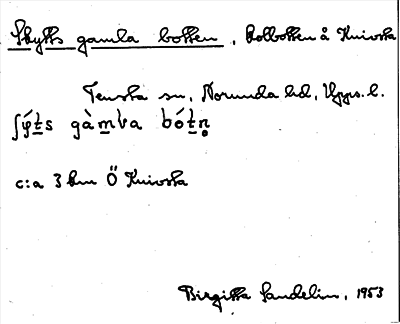 Skytts gamla botten, Kolbotten å Knivsta
Tensta sn, Norunda hd, Upps. l.
ʃý̱ts gàm̱ba bóṯn̥
c:a 3 km Ö Knivsta
Birgitta Sandelin, 1953